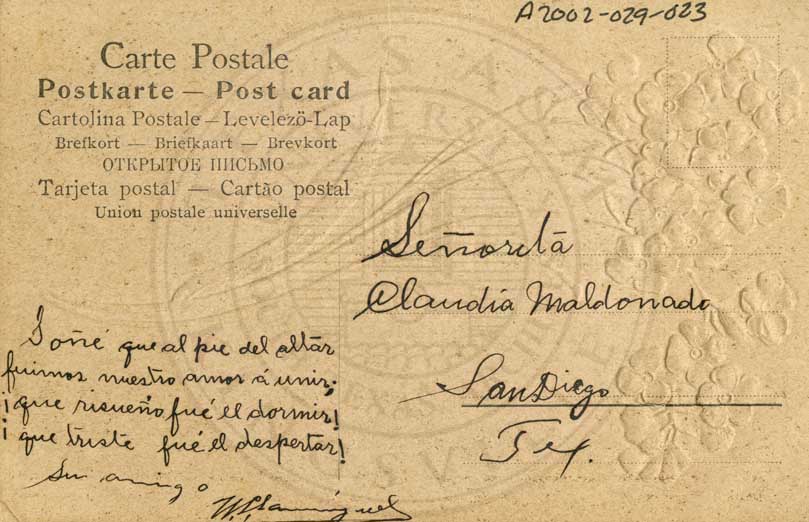 A2002-029-023
Carte Postale
Postkarte — Post card
Cartolina Postale – Levelezö-Lap
Brefkort — Briefkaart — Brevkort
ОТКРЫТОЕ ПИСЬМО
Tarjeta postal — Cartão postal
Union postale universelle
Señorita
Claudia Maldonado
San Diego
Tex.
Soñé que al pie del altar
fuimos nuestro amor á unir;
¡que risueño fué el dormir!
¡que triste fué el despertar!
Su amigo